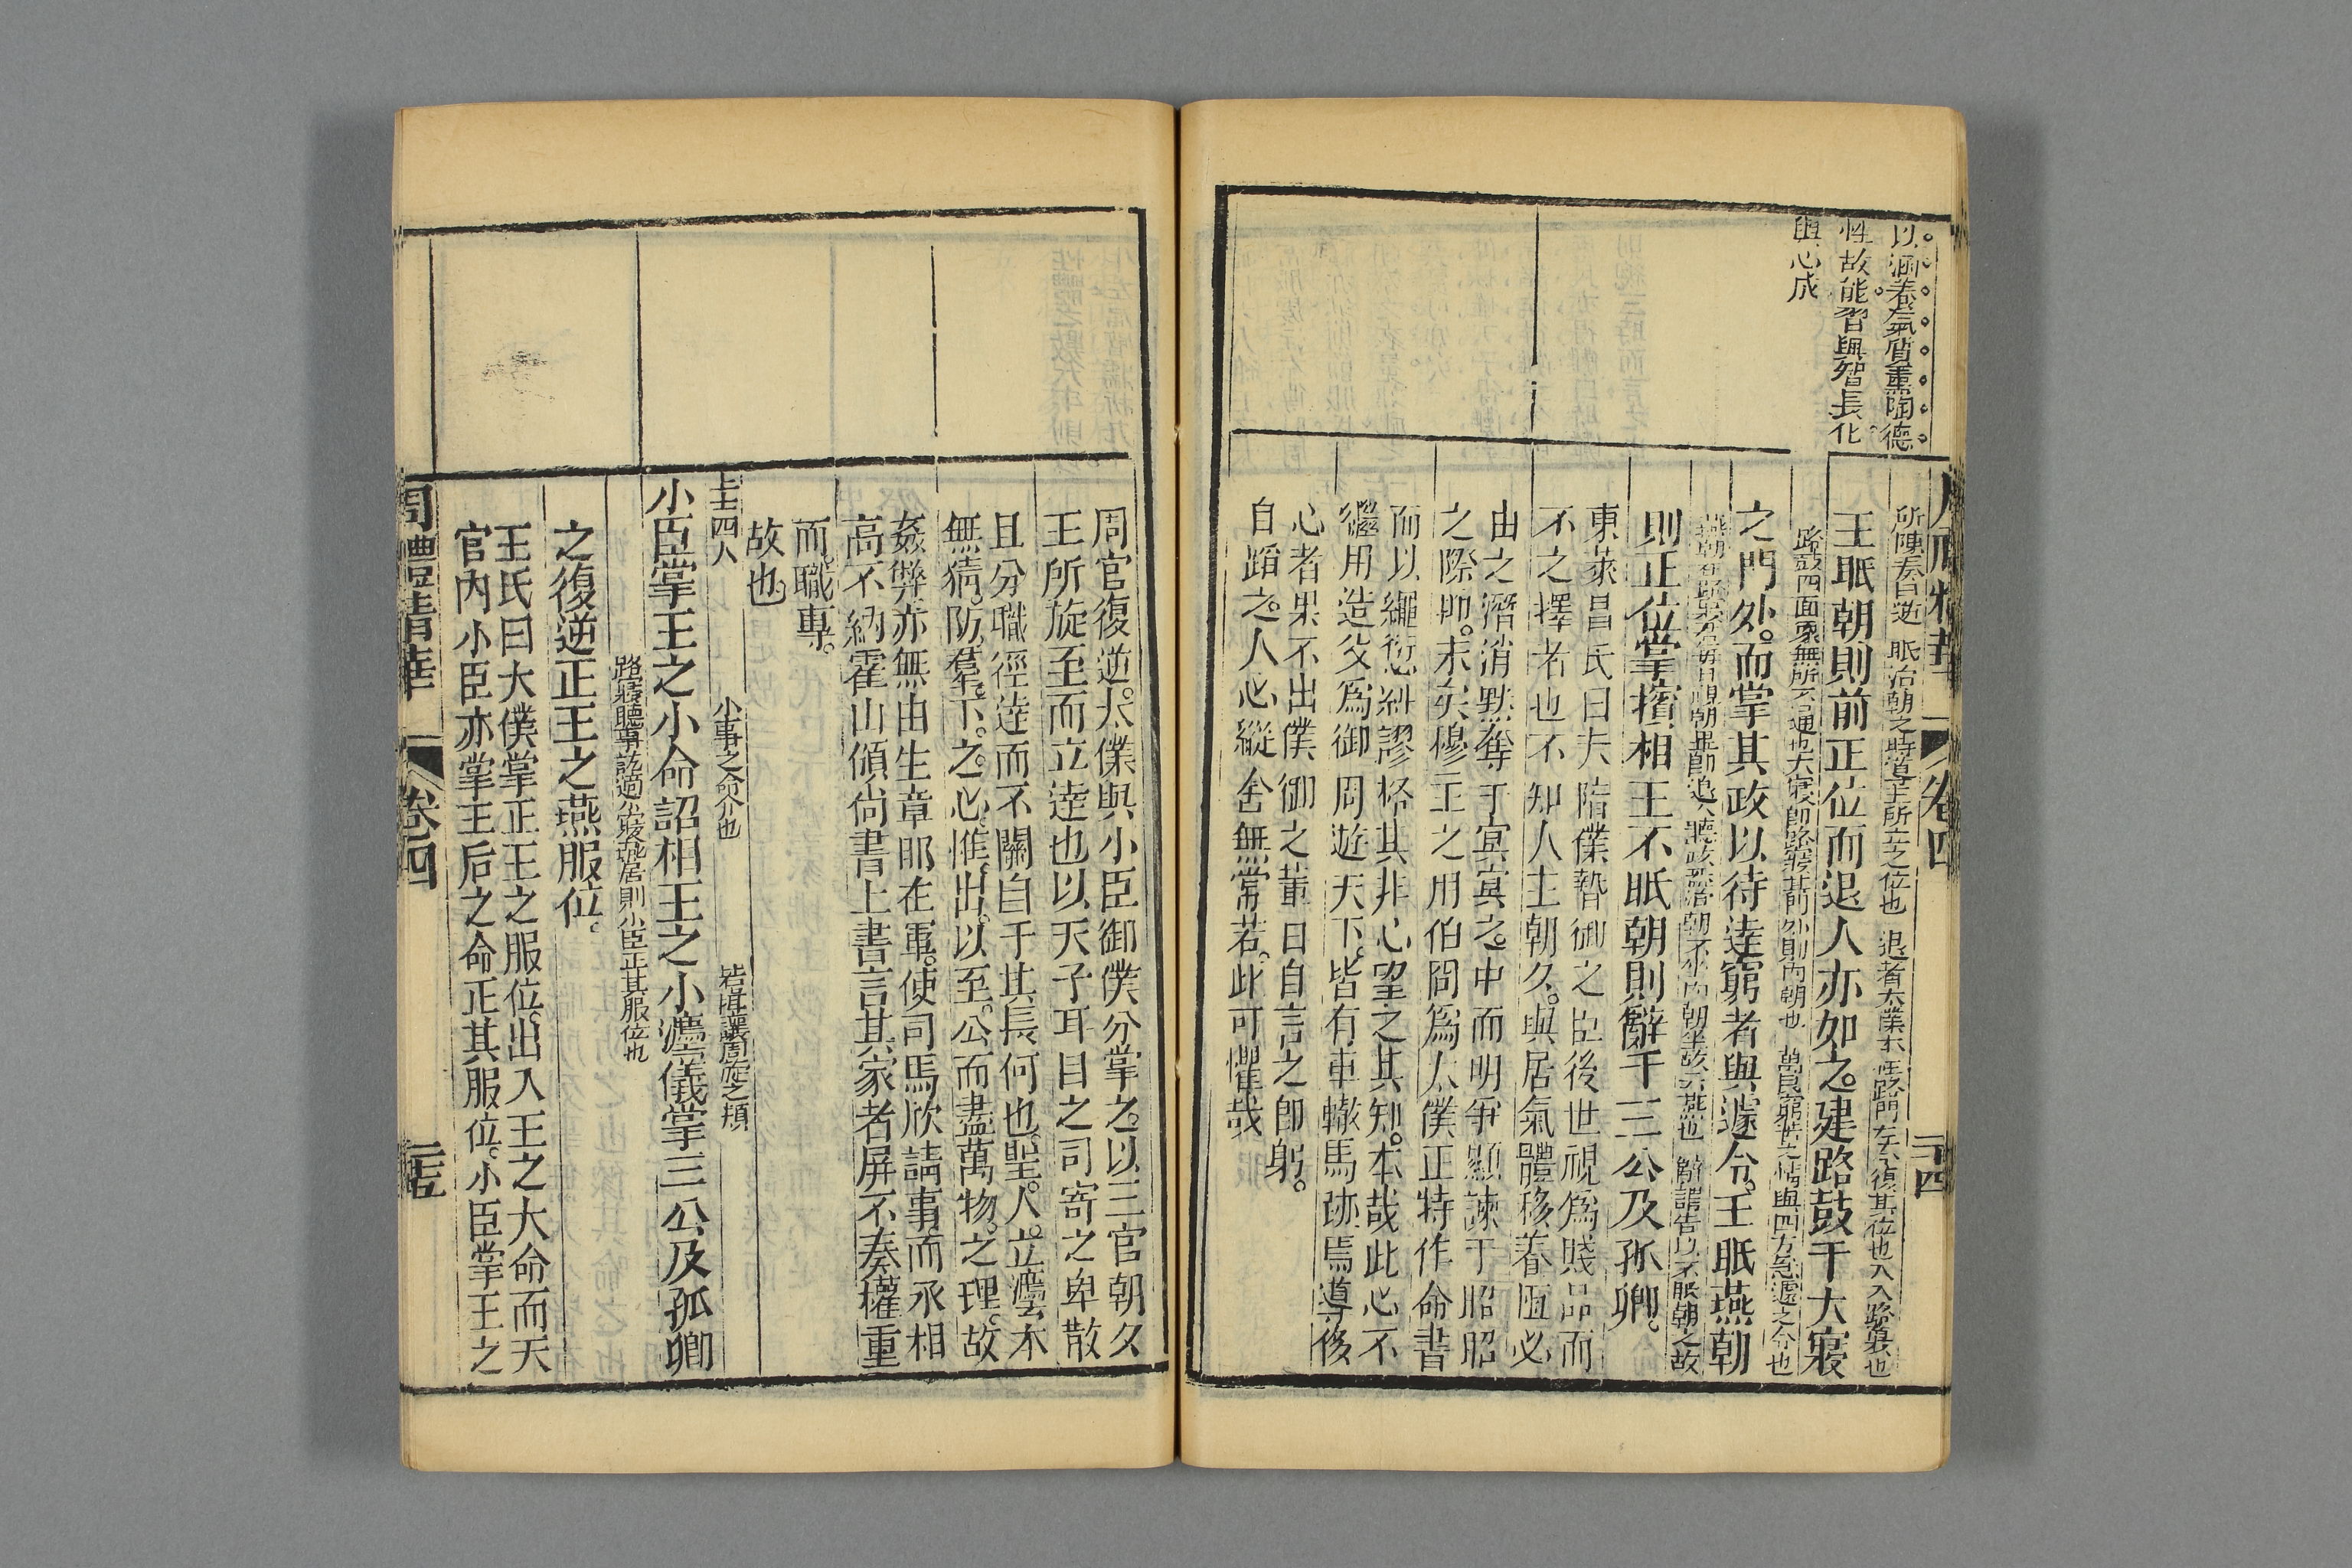 以涵養氣質熏陶德
性故能習與智長化
與心成
卷四
二十四
所陳奏曰逆 眡治朝之時導王所立之位也 退者大僕木在路門左右復其位也入入路寢也
王眡朝則前正位而退入亦如之建路鼓于大寢
路鼓四面示無所不通也大寢即路寢其門外則內朝也 萬民窮苦之情與四方急遽之令也
之門外而掌其政以待達窮者與遽令王眡燕朝
燕朝在路寢
則正位掌擯相王不眡朝則辭于三公及孤卿
東萊呂氏曰夫陪僕暬御之臣後世視爲賤品而
不之擇者也不知人主朝久與居氣體移養恆必
由之潛消默奪于冥冥之中而明爭顯諫于昭昭
之際抑末矣穆王之用伯冏爲太僕正特作命書
而以繩愆糾謬格其非心望之其知本哉此心不
繼用造父爲御周遊天下皆有車轍馬跡焉導侈
心者果不出僕御之輩曰自言之即躬
自蹈之人心縱舍無常若此可懼哉
周官復逆太僕與小臣御僕分掌之以三官朝久
王所旋至而立達也以天子耳目之司寄之卑散
且分職徑達而不關自于其長何也聖人立灋本
無猜防羣下之心惟出以至公而盡萬物之理故
姦弊亦無由生章邯在軍使司馬欣請事而丞相
高不納霍山領尚書上書言其家者屏不奏權重
而職專
故也
上士四人 小事之命令也 皆揖讓周旋之類
小臣掌王之小命詔相王之小灋儀掌三公及孤卿
路寢聽事訖適小寢燕居則小臣正其服位也
之復逆正王之燕服位
王氏曰大僕掌正王之服位出入王之大命而天
官內小臣亦掌王后之命正其服位小臣掌王之
周禮精華
卷四
二十五